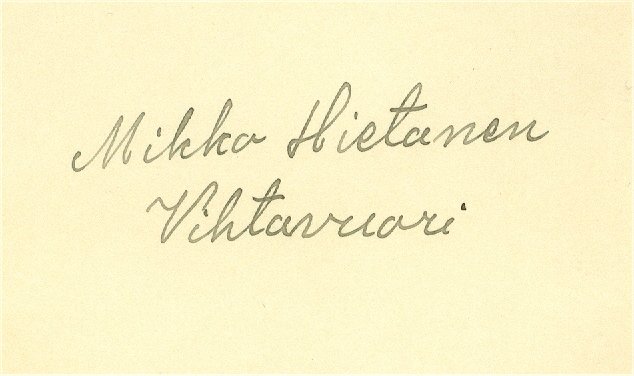 Mikko Hietanen
Vihtavuori